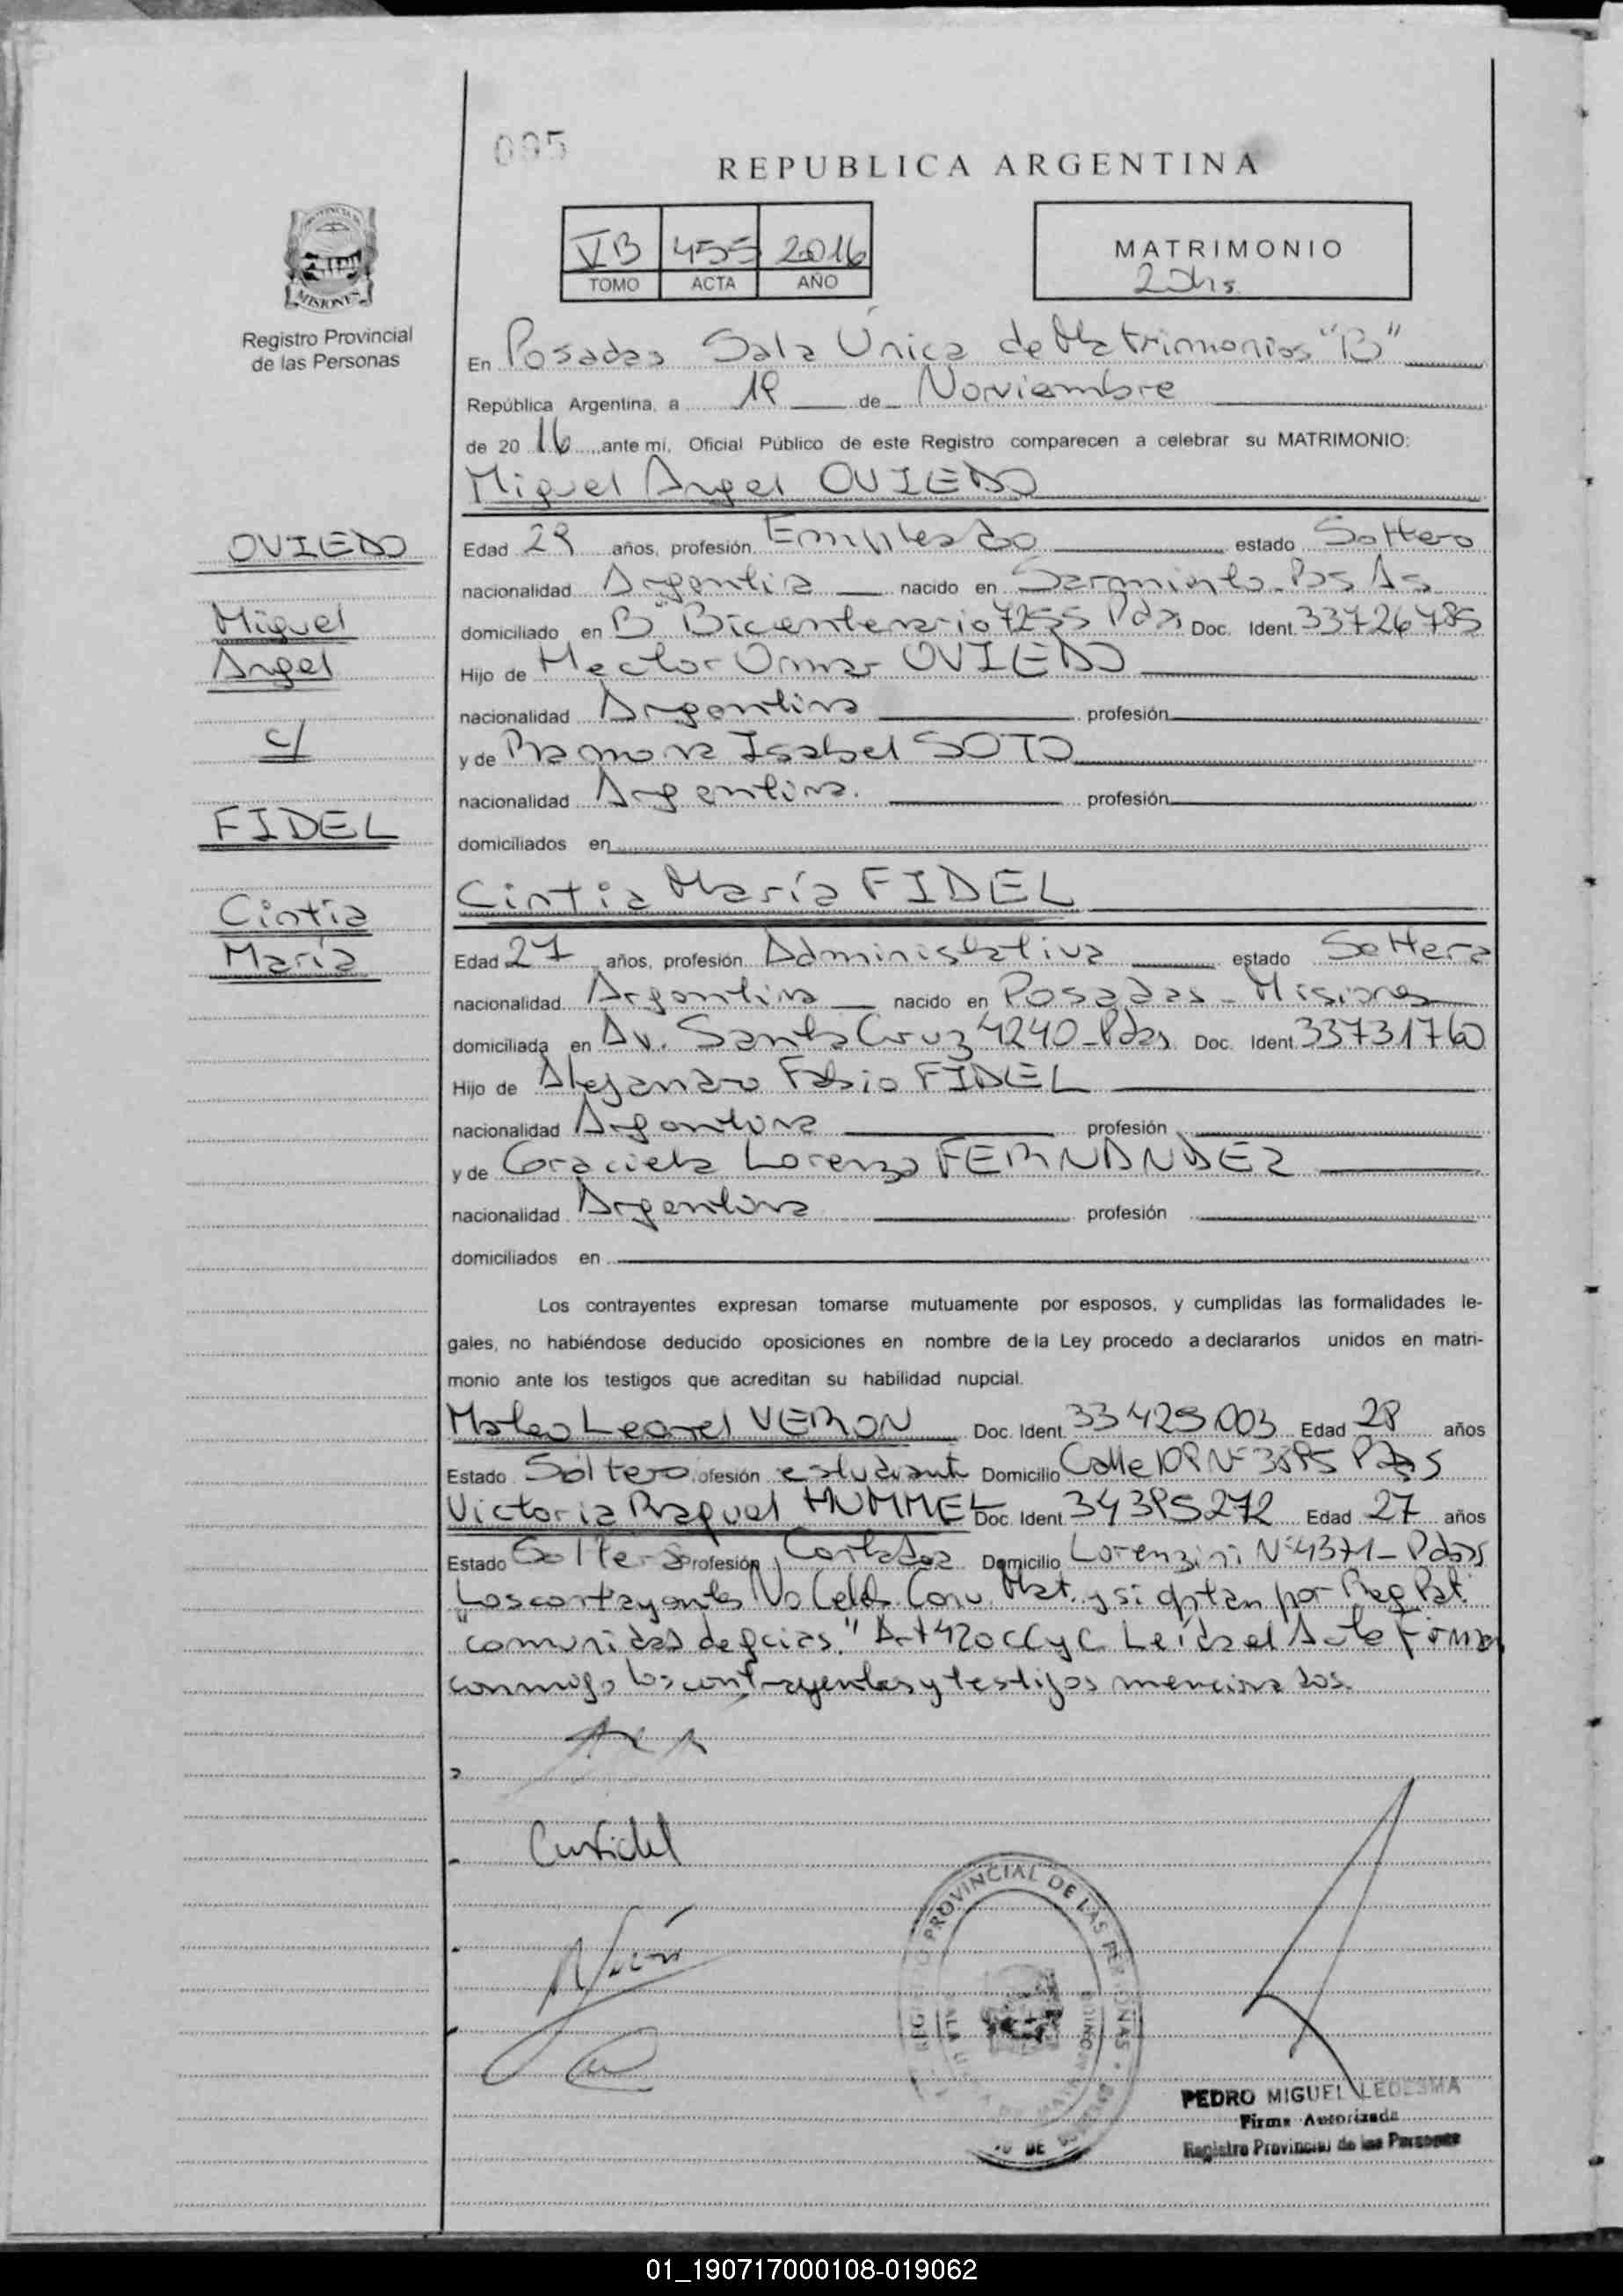 095
REPUBLICA ARGENTINA
PROVINCIA DE
MISIONES
Registro Provincial
de las Personas
VB 455 2016
TOMO ACTA AÑO
MATRIMONIO
20hs
En Posadas Sala Única de Matrimonios "B"
República Argentina, a 19 de Noviembre
de 2016 ante mi, Oficial Público de este Registro comparecen a celebrar su MATRIMONIO:
Miguel Angel OVIEDO
OVIEDO
Miguel
Angel
c/
FIDEL
Cintia
María
Edad 29 años, profesión Empleado estado Soltero
nacionalidad Argentina nacido en Sarmiento - Bs As
domiciliado en B° Bicentenario 7255 Pdas Doc. Ident. 33726785
Hijo de Hector Omar OVIEDO
nacionalidad Argentina profesión
y de Ramona Isabel SOTO
nacionalidad Argentina. profesión
domiciliados en
Cintia María FIDEL
Edad 27 años, profesión Administrativa estado Soltera
nacionalidad Argentina nacido en Posadas - Misiones
domiciliada en Av. Santa Cruz 4240 - Pdas Doc. Ident. 33731760
Hijo de Alejandro Fabio FIDEL
nacionalidad Argentina profesión
y de Graciela Lorenza FERNANDEZ
nacionalidad Argentina profesión
domiciliados en
Los contrayentes expresan tomarse mutuamente por esposos, y cumplidas las formalidades le-
gales, no habiéndose deducido oposiciones en nombre de la Ley procedo a declararlos unidos en matri-
monio ante los testigos que acreditan su habilidad nupcial.
Mateo Leonel VERON Doc. Ident. 33425003 Edad 28 años
Estado Soltero ofesión estudiante Domicilio Calle 108 N° 3885 Pdas
Victoria Raquel HUMMEL Doc. Ident. 34395272 Edad 27 años
Estado Soltera Profesión Contadora Domicilio Lorenzini N° 4371 - Pdas
Los contrayentes No Celeb. Conv. Mat. y si optan por Reg Pat
"comunidad de gcias." Art 420 CCyC Leída el Acta Firman
conmigo los contrayentes y testigos mencionados.
Cintia Fidel
PROVINCIAL DE LAS PERSONAS
PEDRO MIGUEL LEDESMA
Firma Autorizada
Registro Provincial de las Personas
01_190717000108-019062